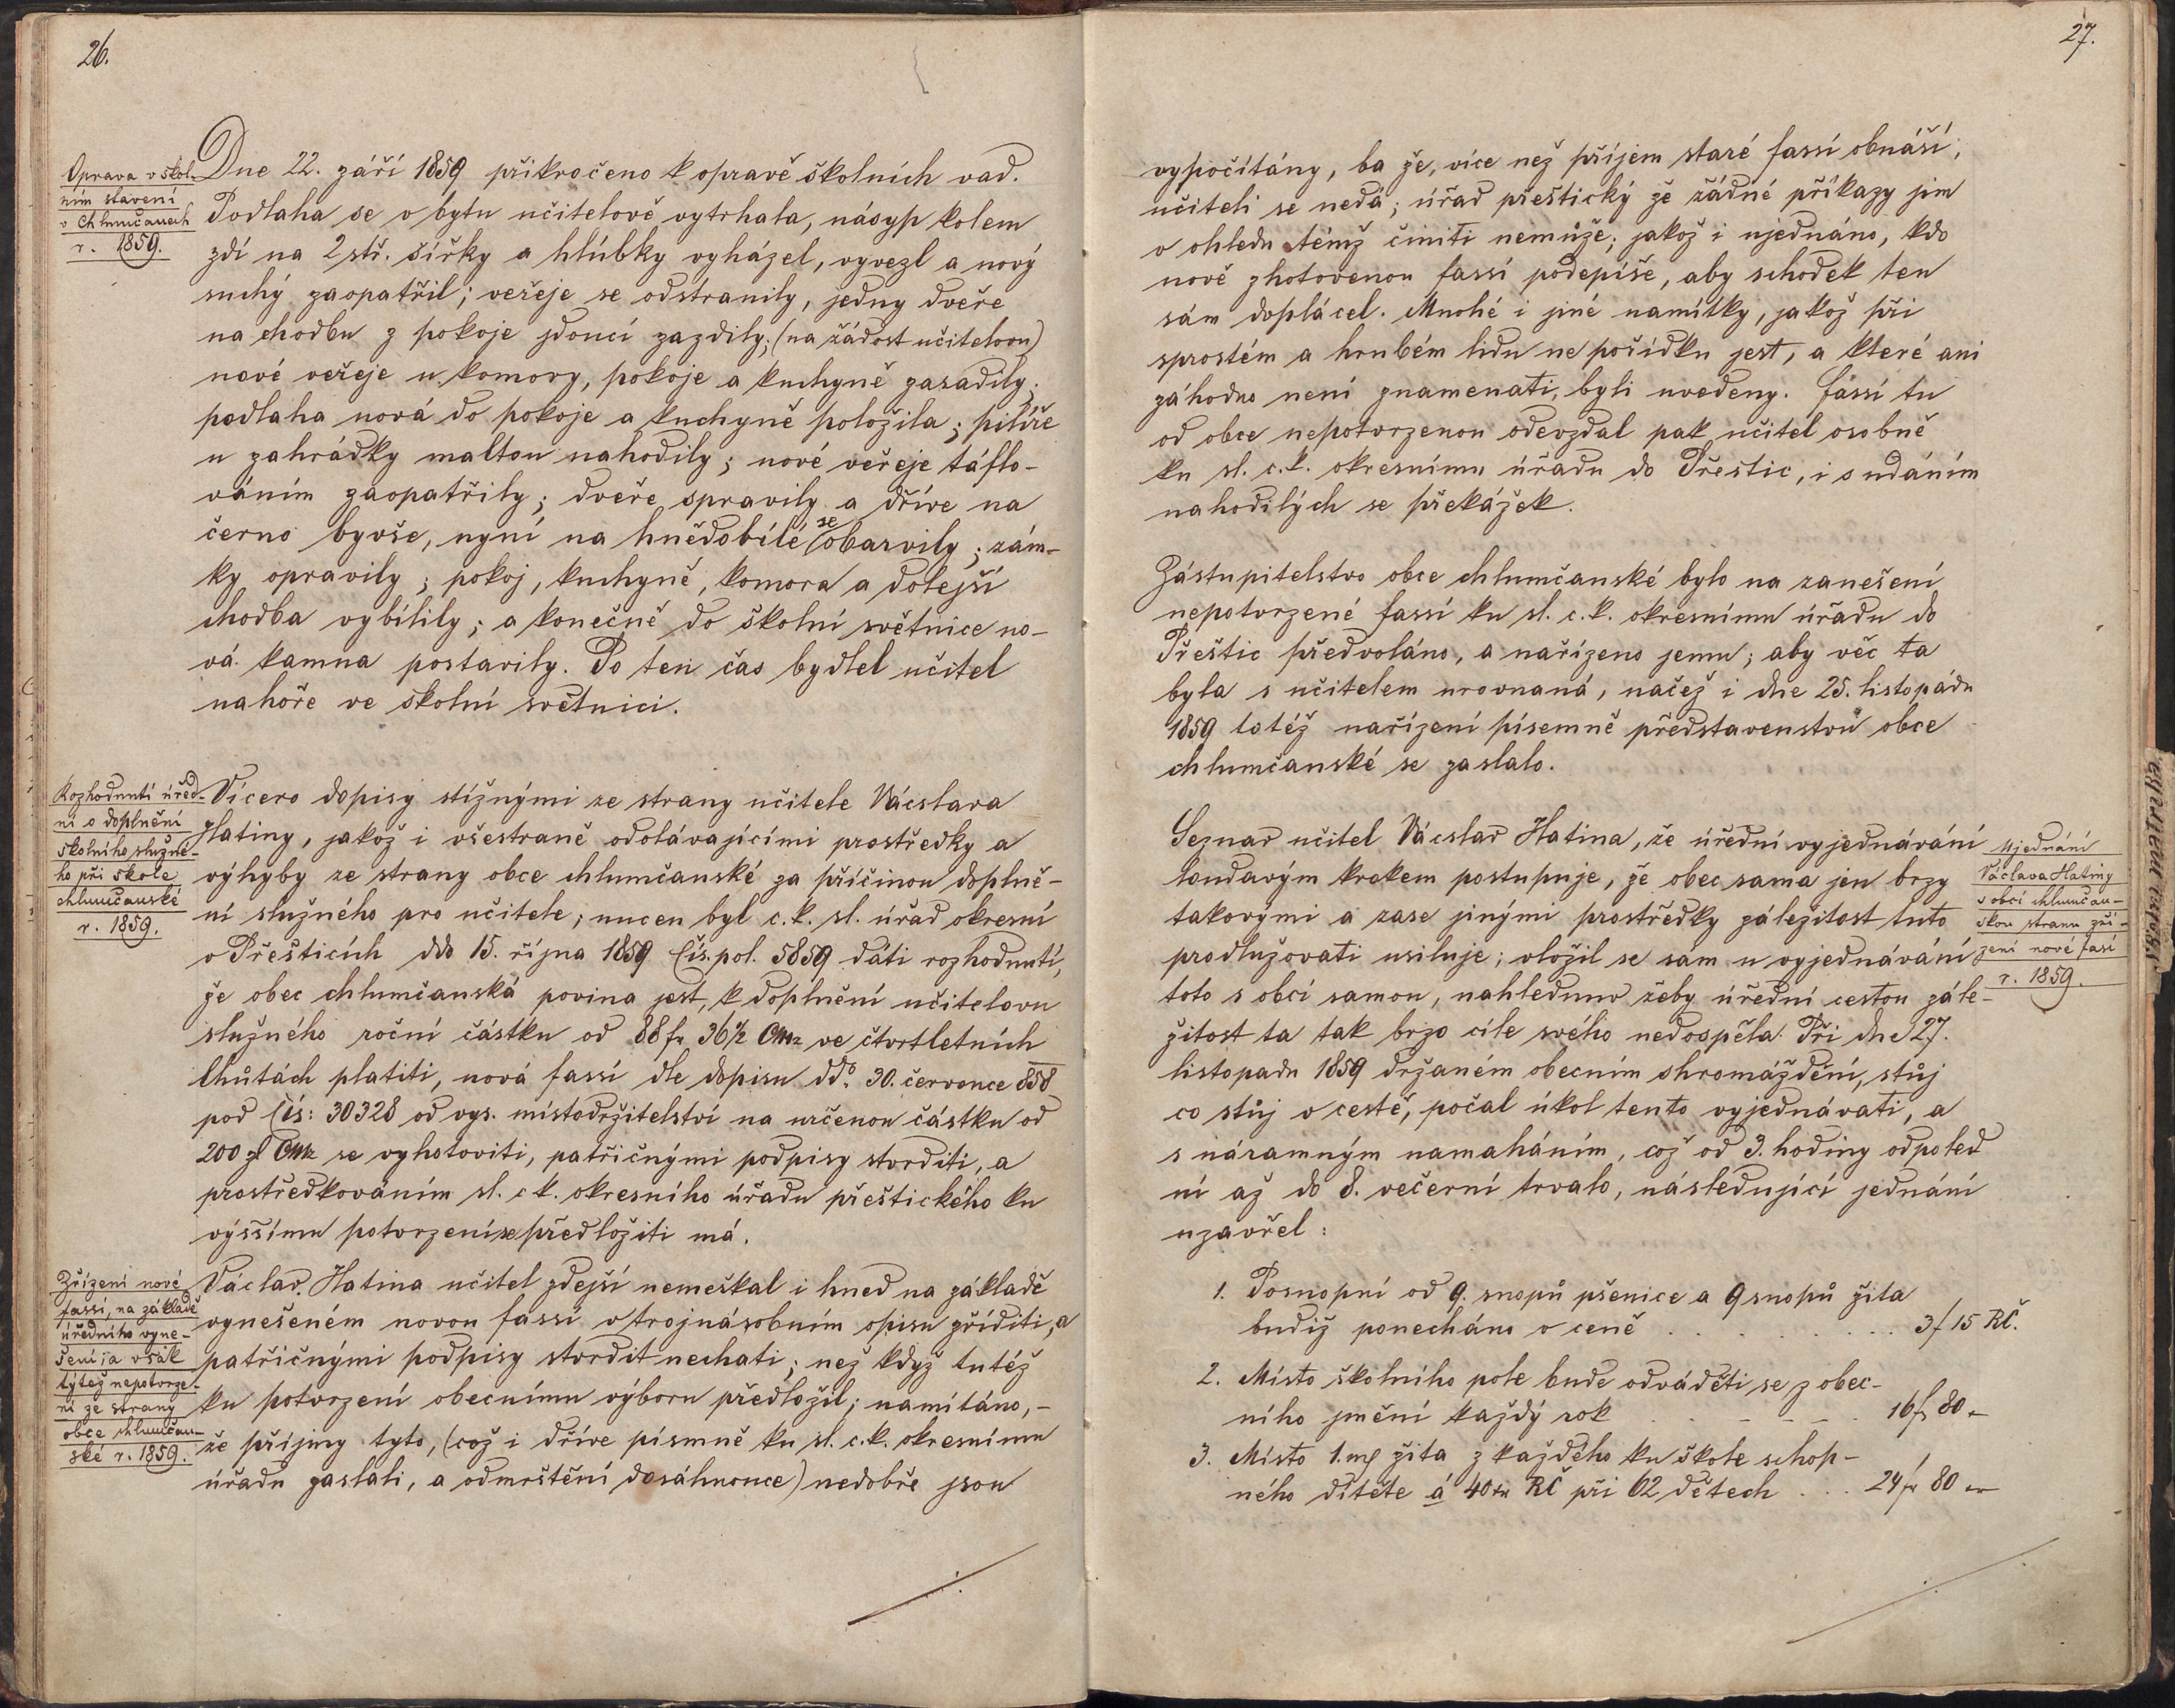 26.
Oprava v škol-
ním stavení
v Chlumčanech
r. 1859.
Dne 22. září 1859 přikročeno k opravě školních vad.
Podlaha se v bytu učitelově vytrhala, násyp kolem
zdí na 2 stř. šířky a hlúbky vyházel, vyvezl a nový
suchý zaopatřil; veřeje se odstranily, jedny dveře
na chodbu z pokoje jdoucí zazdily; (na žádost učitelovu)
nové veřeje u komory, pokoje a kuchyně zasadily;
podlaha nová do pokoje a kuchyně položila; pilíře
u zahrádky maltou nahodily; nové veřeje táflo-
váním zaopatřily; dveře spravily a dříve na
černo byvše, nyní na hnědobílé se obarvily; zám-
ky opravily; pokoj, kuchyně, komora a dolejší
chodba vybílily; a konečně do školní světnice no-
vá kamna postavily. Po ten čas bydlel učitel
nahoře ve školní světnici.
Rozhodnutí úřed-
ní o doplnění
školního služné-
ho při škole
chlumčanské
r. 1859.
Vícero dopisy stížnými ze strany učitele Vácslava
Hatiny, jakož i všestraně odolávajícími prostředky a
výhyby ze strany obce chlumčanské za příčinou doplně-
ní služného pro učitele; nucen byl c.k. sl. úřad okresní
v Přešticích ddo 15. října 1859 Čís. pol. 5859 dáti rozhodnutí,
že obec chlumčanská povina jest, k doplnění učitelovu
služného roční částku od 88 fr 36½ CMz ve čtvrtletních
lhůtách platiti, nová fassí dle dopisu dd. 30. července 858
pod Čís: 30328 od vys. místodržitelství na určenou částku od
200 zl CMz se vyhotoviti, patřičnými podpisy stvrditi, a
prostředkováním sl. c k. okresního úřadu přeštického ku
výsšímu potvrzení se předložiti má.
Zřízení nové
fassí, na základě
úředního vyne-
šení; a však
týtéž nepotvrze-
ní ze strany
obce chlumčan-
ské r. 1859.
Václav Hatina učitel zdejší nemeškal i hned na základě
vynešeném novou fassí v trojnásobním opisu zříditi, a
patřičnými podpisy stvrdit nechati; než když tutéž
ku potvrzení obecnímu výboru předložil; namítáno,-
že příjmy tyto, (což i dříve písmně ku sl. c.k. okresnímu
úřadu zaslali, a odmrštění dosáhnouce) nedobře jsou
27.
vypočítány, ba že, více než příjem staré fassí obnáší,
učiteli se nedá; úřad přeštický že žádné příkazy jim
v ohledu témž činiti nemůže; jakož i ujednáno, kdo
nově zhotovenou fassí podepíše, aby schodek ten
sám doplácel. Mnohé i jiné namítky, jakož při
sprostém a hrubém lidu ne pořídku jest, a které ani
záhodno není znamenati, byli uvedeny. Fassí tu
od obce nepotvrzenou odevzdal pak učitel osobně
ku sl. c.k. okresnímu úřadu do Přeštic, i s udáním
nahodilých se překážek.
Zástupitelstvo obce chlumčanské bylo na zanešení
nepotvrzené fassí ku sl. c.k. okresnímu úřadu do
Přeštic předvoláno, a nařízeno jemu; aby věc ta
byla s učitelem urovnaná, načež i dne 25. listopádu
1859 totéž nařízení písemně představenstvu obce
chlumčanské se zaslalo.
Seznav učitel Vácslav Hatina, že úřední vyjednávání
loudavým krokem postupuje, že obec sama jen brzy
takovými a zase jinými prostředky záležitost tuto
prodlužovati usiluje; vložil se sám u vyjednávání
toto s obcí samou, nahlednuv žeby úřední cestou zále-
žitost ta tak brzo cíle svého nedospěla. Při dne 27.
listopadu 1859 držaném obecním shromáždění, stůj
co stůj v cestě, počal úkol tento vyjednávati, a
s náramným namaháním, což od 3. hodiny odpoled
ní až do 8. večerní trvalo, následující jednání
uzavřel:
Ujednání
Václava Hatiny
s obcí chlumčan-
skou stranu zří-
zení nové fasí
r. 1859.
1. Posnopní od 9. snopů pšenice a 9 snopů žita
budiž ponecháno v ceně . . . . . . . . 3 f 15 RČ.
2. Místo školního pole bude odváděti se z obec-
ního jmění každý rok . . - - - . 16 fr 80 -
3. Místo 1. mě žita z každého ku škole schop-
ného dítěte á 40 kr RČ při 62 dětech . . . 24 fr 80 -